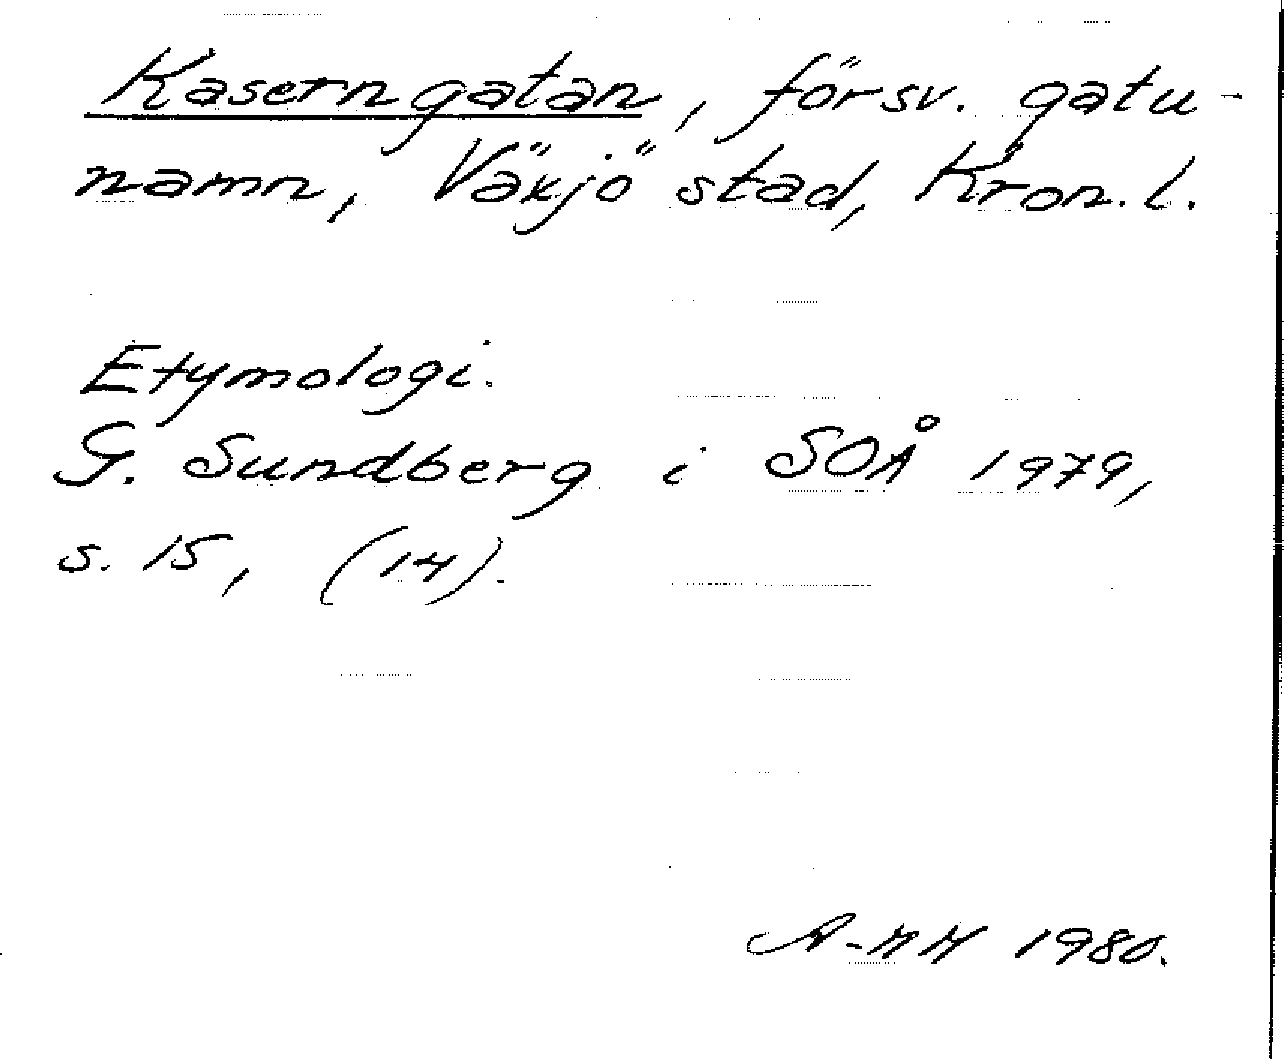 Kaserngatan, försv. gatu-
namn, Växjö stad, Kron. l.
Etymologi.
G. Sundberg i SOÅ 1979,
s. 15, (14).
1980.